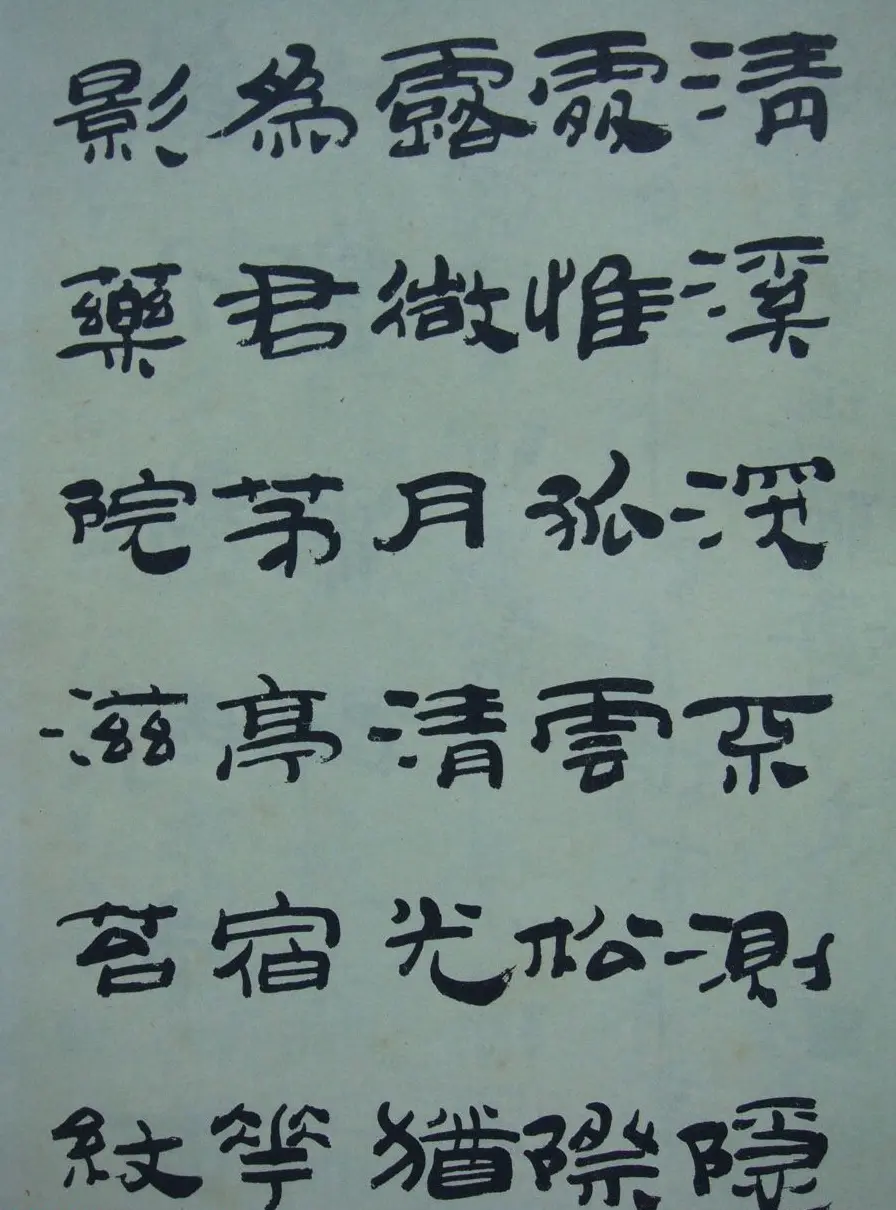 清溪深不測隱
處惟孤雲松際
露微月清光猶
為君茅亭宿華
影藥院滋苔紋